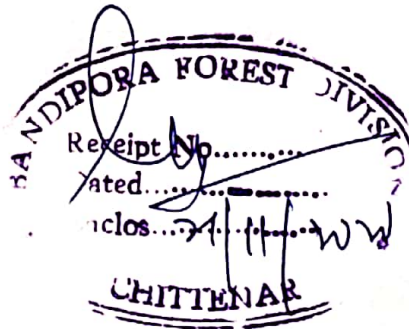 BANDIPORA FOREST DIVISION
Receipt No..........
Dated..................
Enclos.....
CHITTENAR